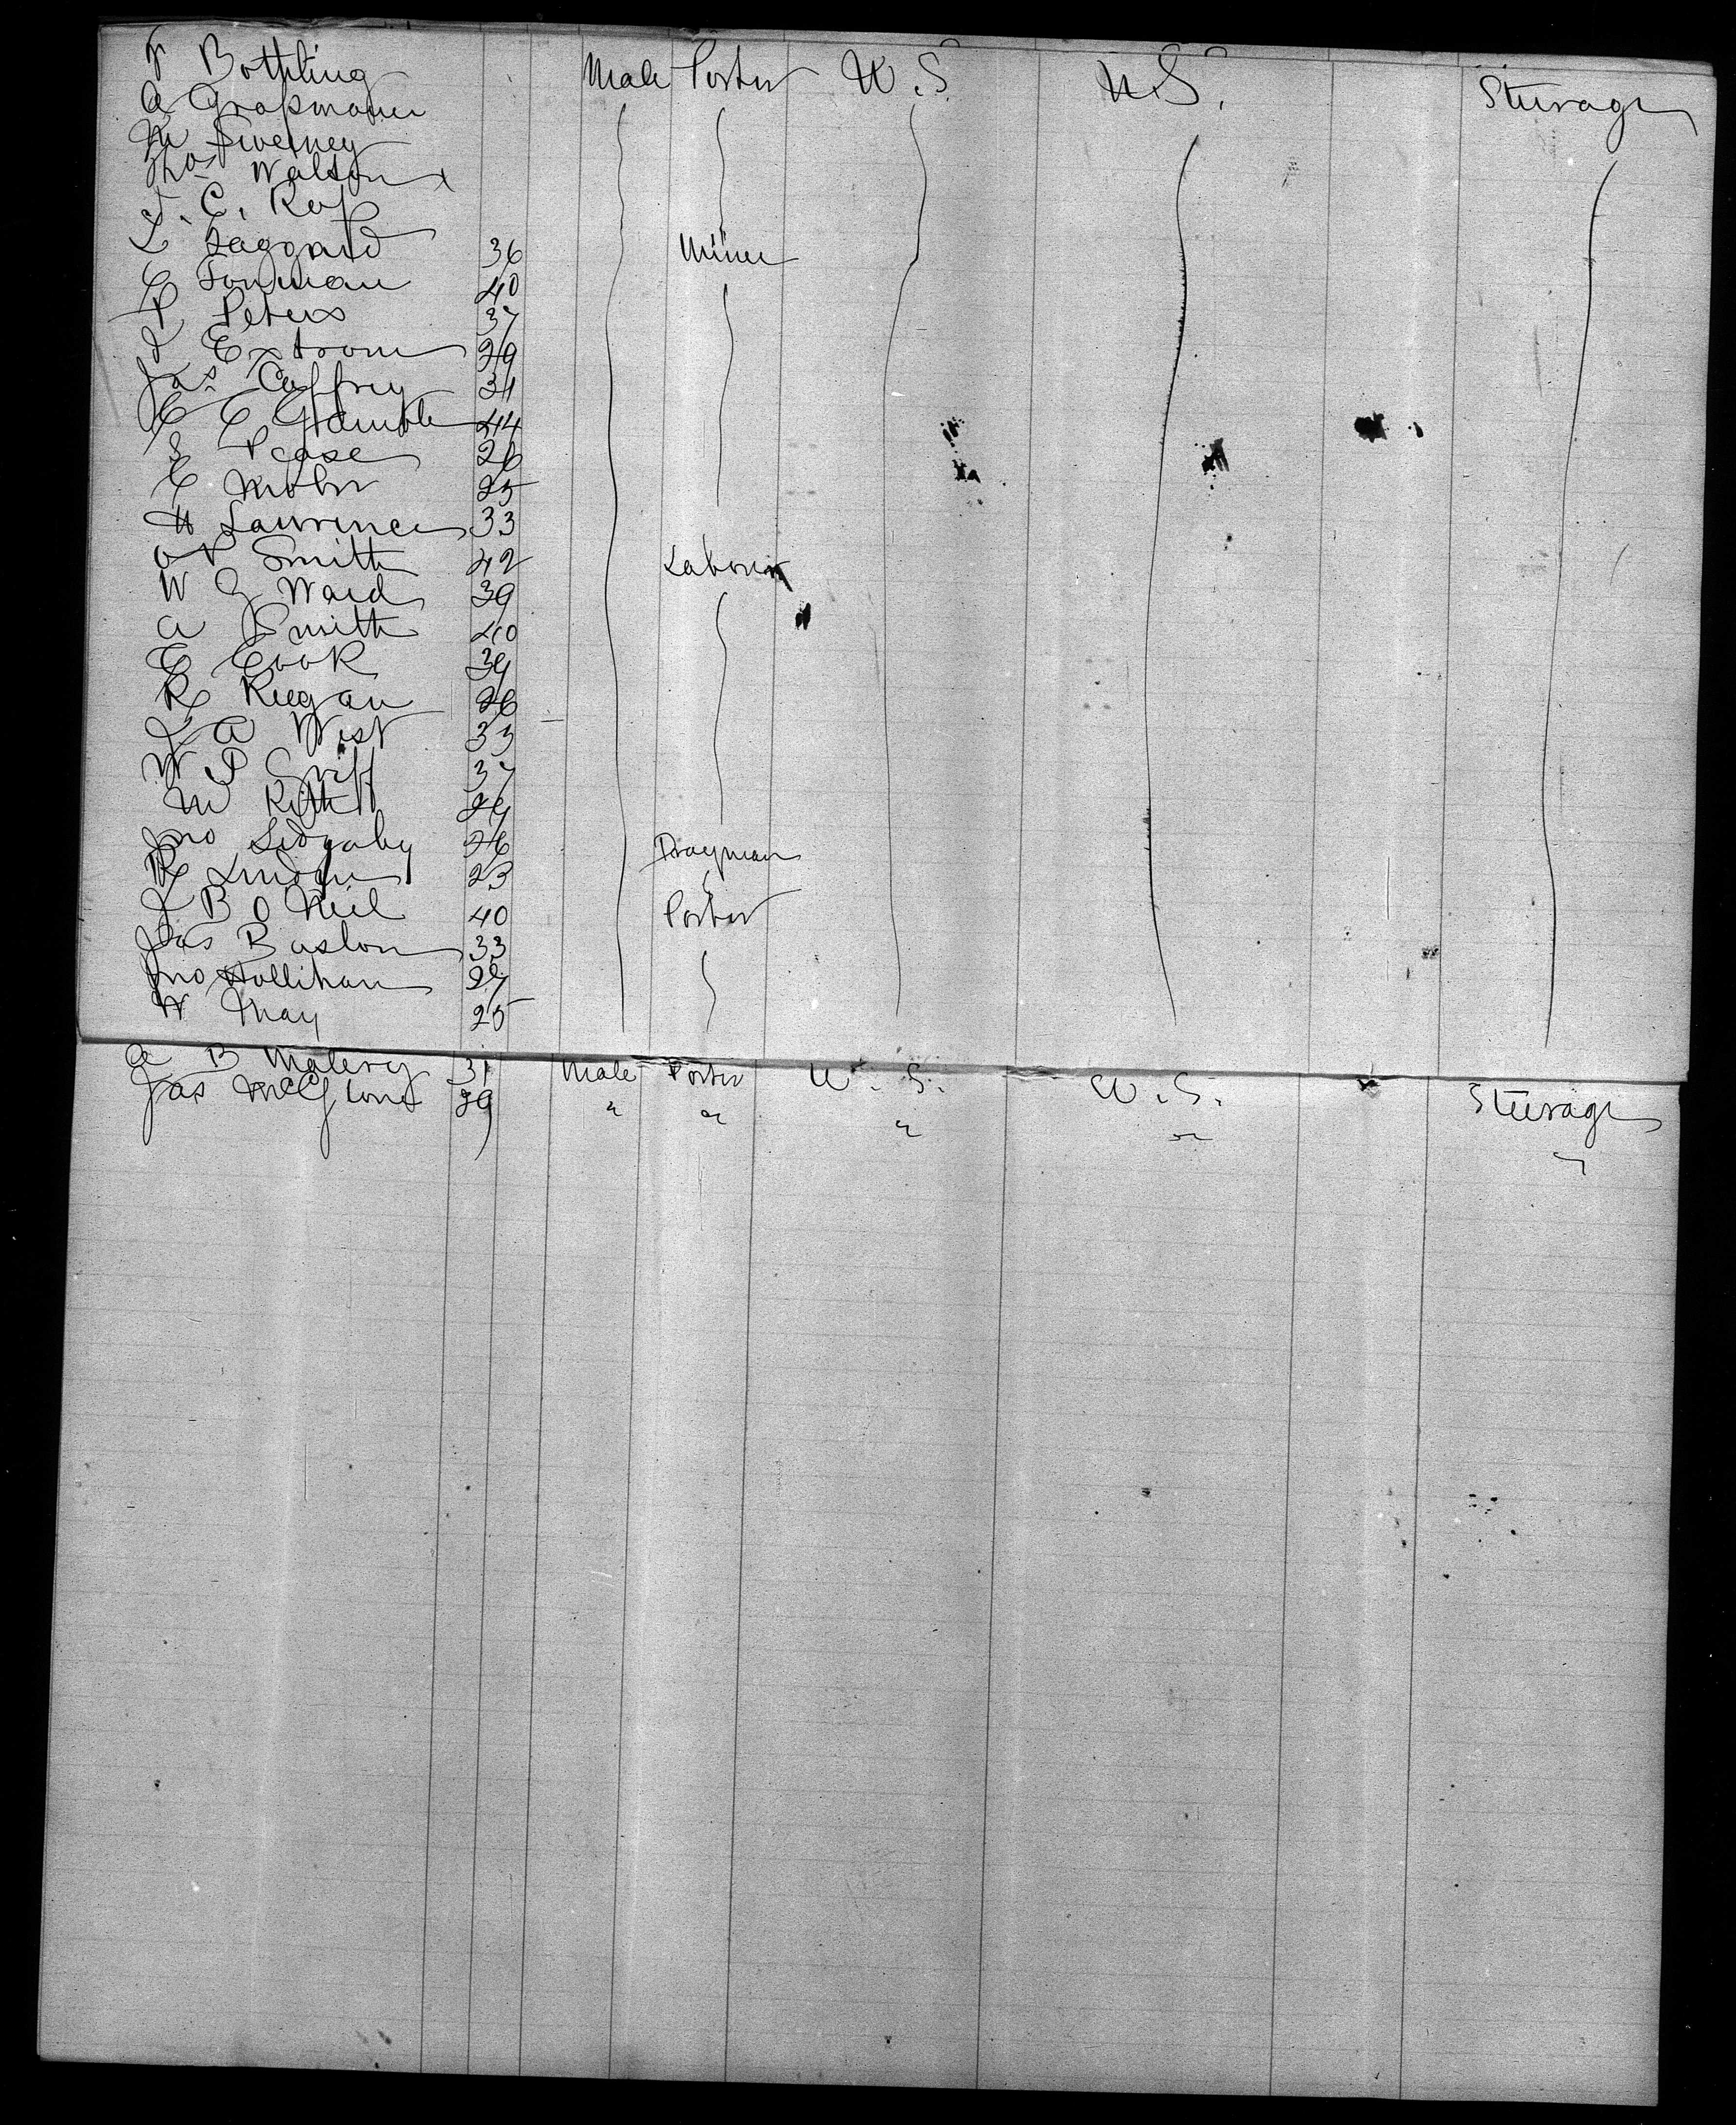 F Bothling Male Porter U.S. U.S. Steerage
A Grossmann
M Sweeney
Thos Watson
T. C. Ross
L Laggard 36 Miner
C Fonman 40
P Peters 37
J Extrom 29
Jas Caffrey 31
C C Gamble 44
S Pease 26
C Mohr 25
H Lawrence 33
O P Smith 42 Laborer
W G Ward 39
A Smith 40
C Cook 34
R Keegan 26
J A West 33
W P Swift 37
M 24
Jno 26 Drayman
R 23
J B O Neil 40 Porter
Jas Baslon 33
Jno Hollihan 27
W May 25
A B Malery 31 Male Porter U.S. U.S. Steerage
Jas McGlone 39 " " " " "